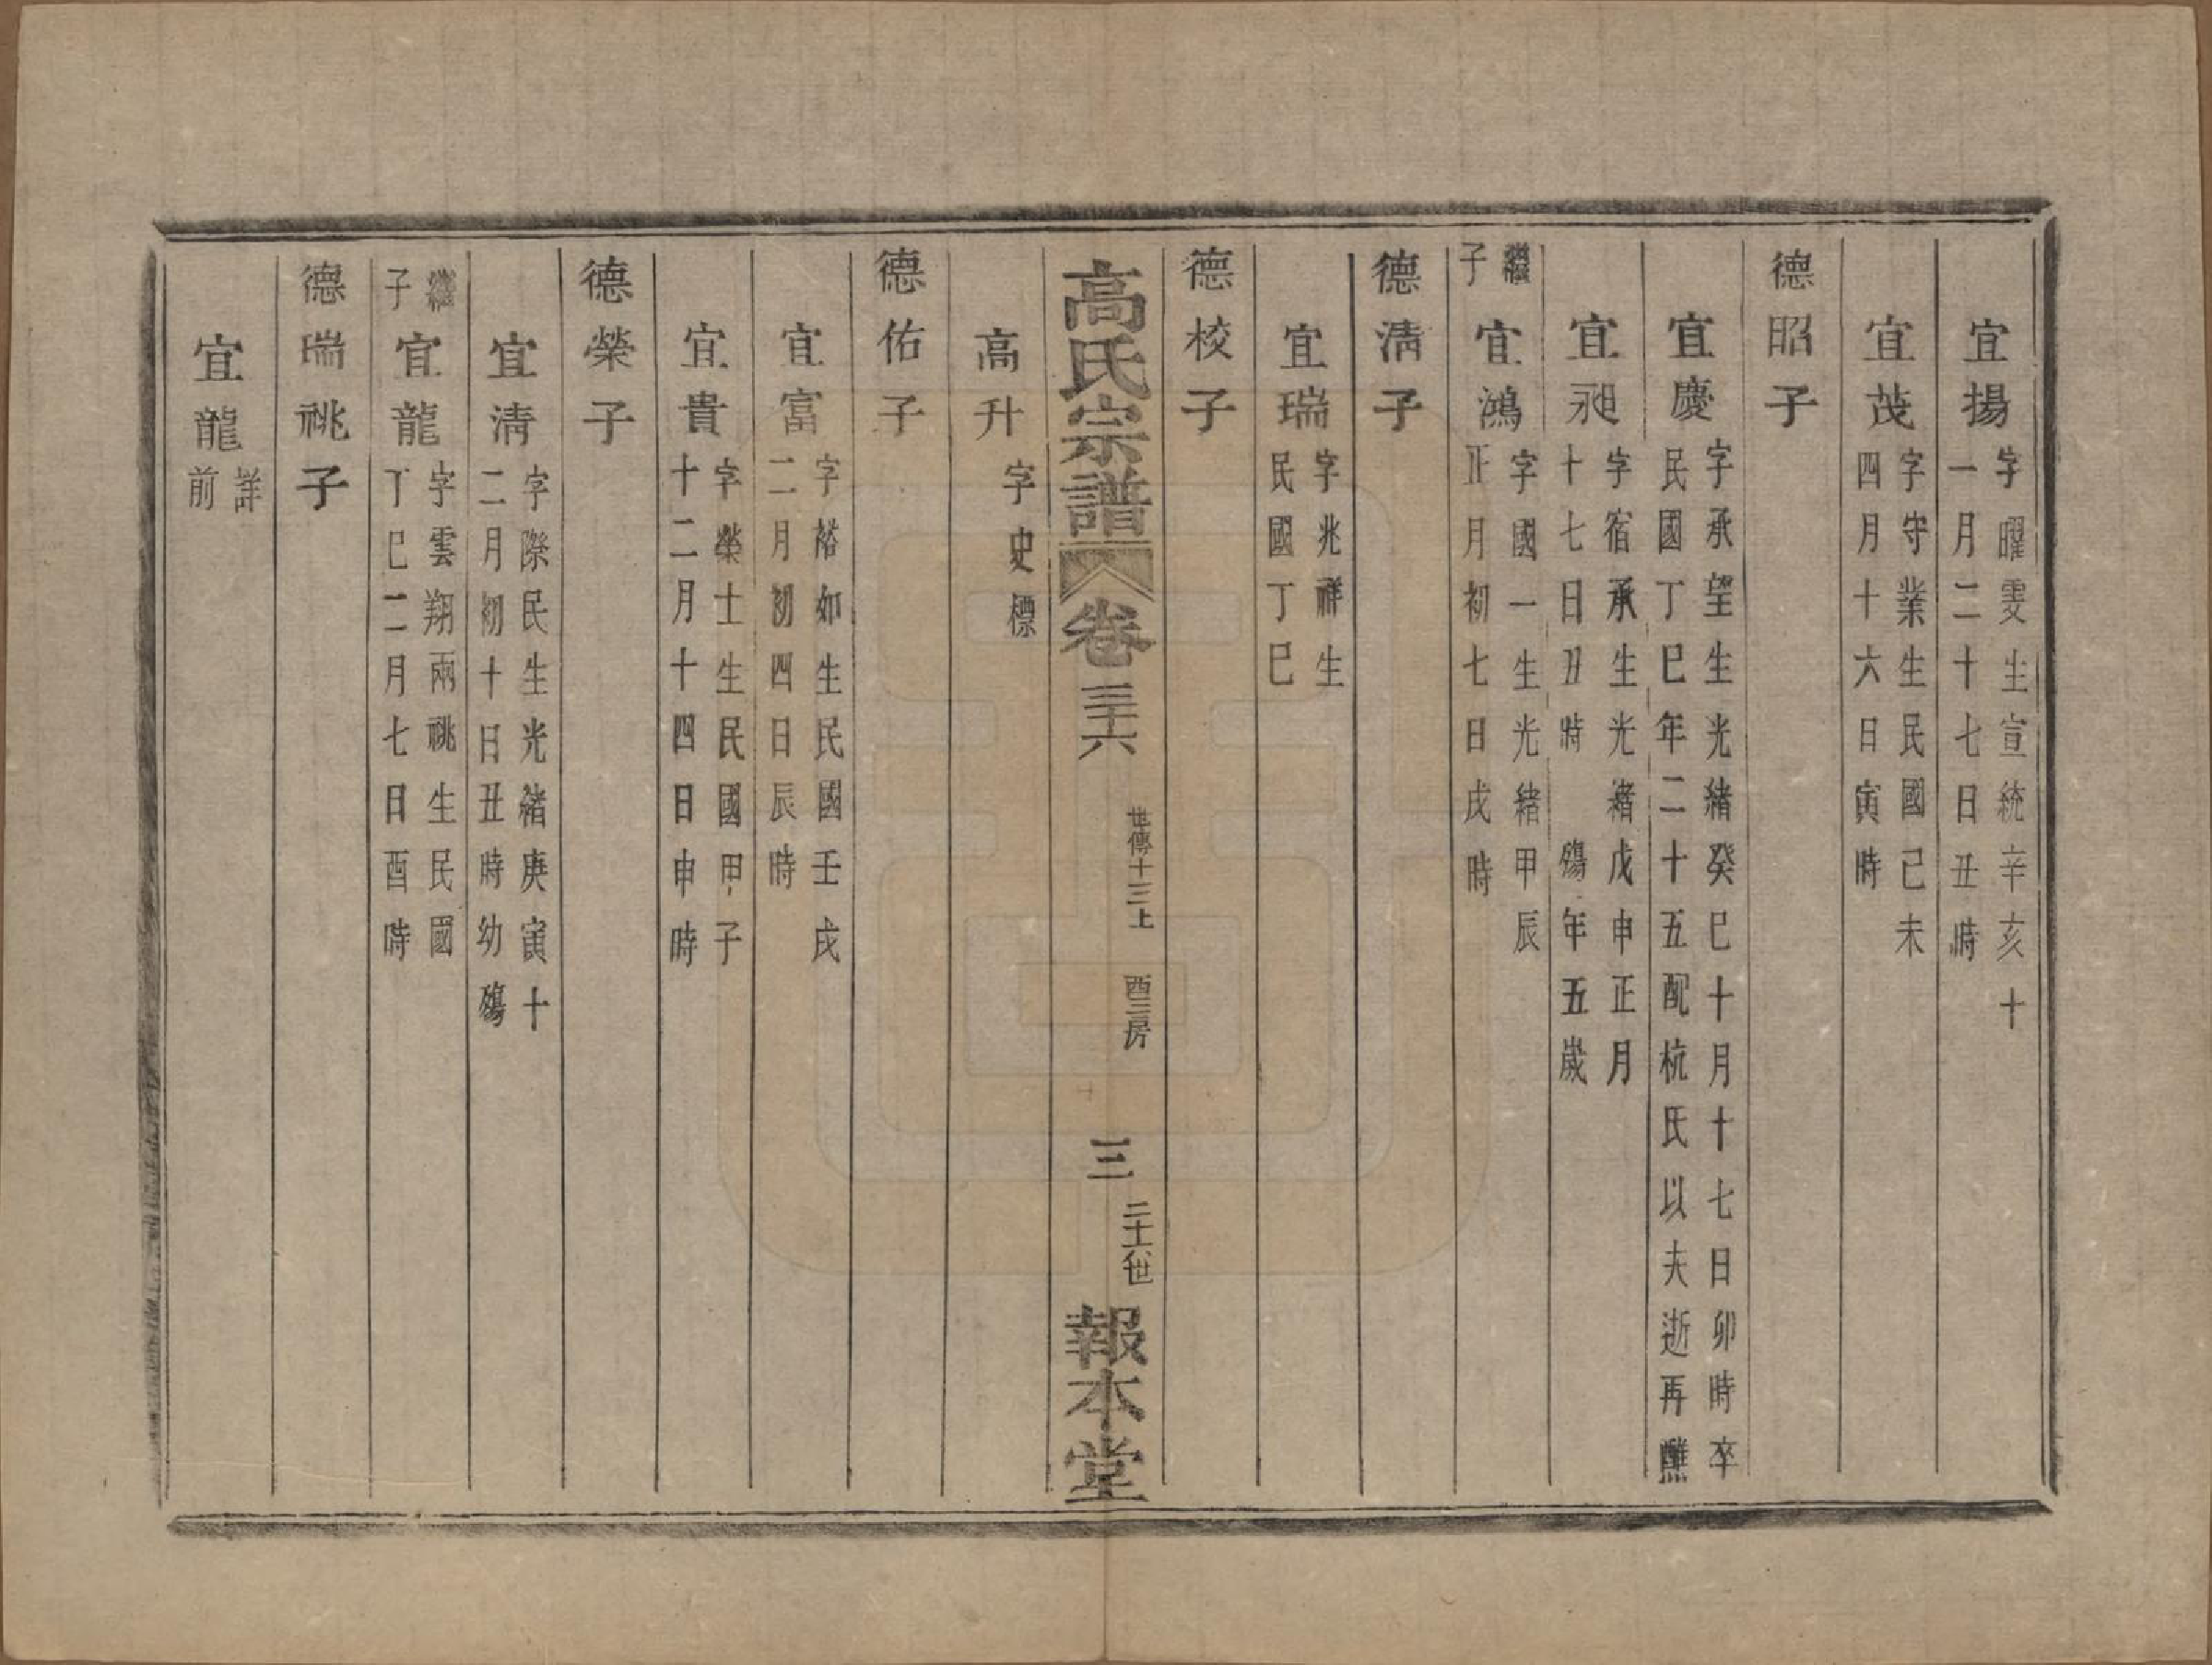 宜揚
字曜雯生宣統辛亥十
一月二十七日丑時
宜茂
字守業生民國己未
四月十六日寅時
德昭子
宜慶
字承望生光緒癸巳十月十七日卯時卒
民國丁巳年二十五配杭氏以夫逝再醮
宜昶
字宿承生光緒戊申正月
十七日丑時 殤年五歲
繼子
宜鴻
字國一生光緒甲辰
正月初七日戌時
德清子
宜瑞
字兆祥生
民國丁巳
德校子
高氏宗譜 卷三十六 世傳十三上 酉三房 三 二十八世 報本堂
高升
字史標
德佑子
宜富
字裕如生民國壬戌
二月初四日辰時
宜貴
字榮士生民國甲子
十二月十四日申時
德榮子
宜清
字際民生光緒庚寅十
二月初十日丑時幼殤
繼子
宜龍
字雲翔兩祧生民國
丁巳二月七日酉時
德瑞祧子
宜龍
詳
前